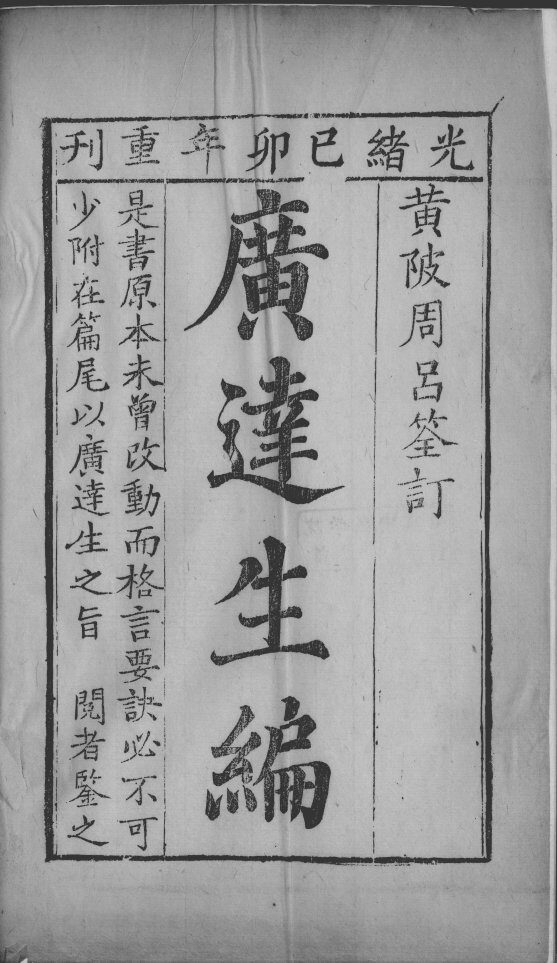 光緒已卯年重刊
黃陂周呂筌訂
廣達生編
是書原本未曾改動而格言要訣必不可
少附在篇尾以廣達生之旨　閱者鑒之